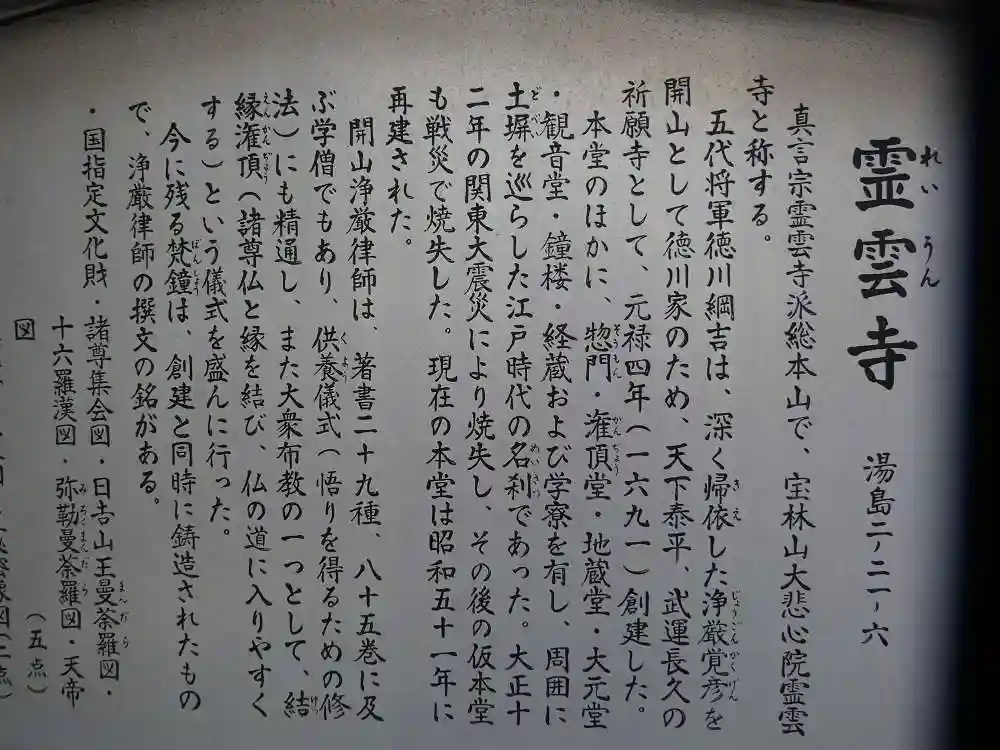 霊雲寺 湯島二ノ二一ノ六
真言宗霊雲寺派総本山で、宝林山大悲心院霊雲
寺と称する。
五代将軍徳川綱吉は、深く帰依した浄厳覚彦を
開山として徳川家のため、天下泰平、武運長久の
祈願寺として、元禄四年(一六九一)創建した。
本堂のほかに、惣門・潅頂堂・地蔵堂・大元堂
・観音堂・鐘楼・経蔵および学寮を有し、周囲に
土塀を巡らした江戸時代の名刹であった。大正十
二年の関東大震災により焼失し、その後の仮本堂
も戦災で焼失した。現在の本堂は昭和五十一年に
再建された。
開山浄厳律師は、著書二十九種、八十五巻に及
ぶ学僧でもあり、供養儀式(悟りを得るための修
法)にも精通し、また大衆布教の一つとして、結
縁潅頂(諸尊仏と縁を結び、仏の道に入りやすく
する)という儀式を盛んに行った。
今に残る梵鐘は、創建と同時に鋳造されたもの
で、浄厳律師の撰文の銘がある。
・国指定文化財・諸尊集会図・日吉山王曼荼羅図・
十六羅漢図・弥勒曼荼羅図・天帝
図 (五点)